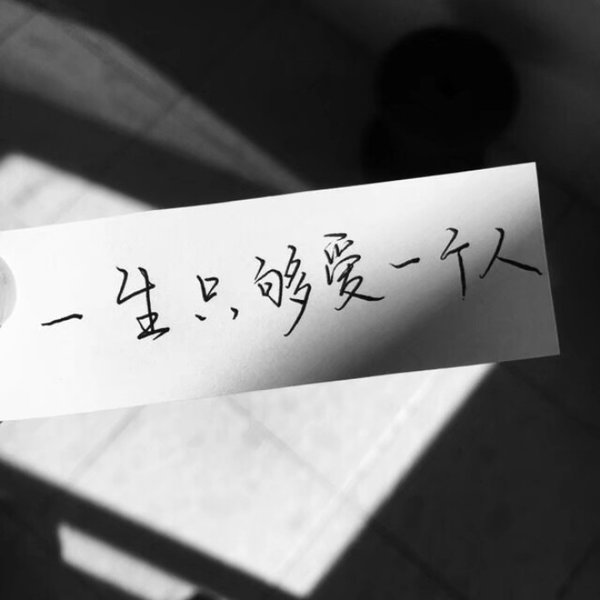 一生只够爱一个人